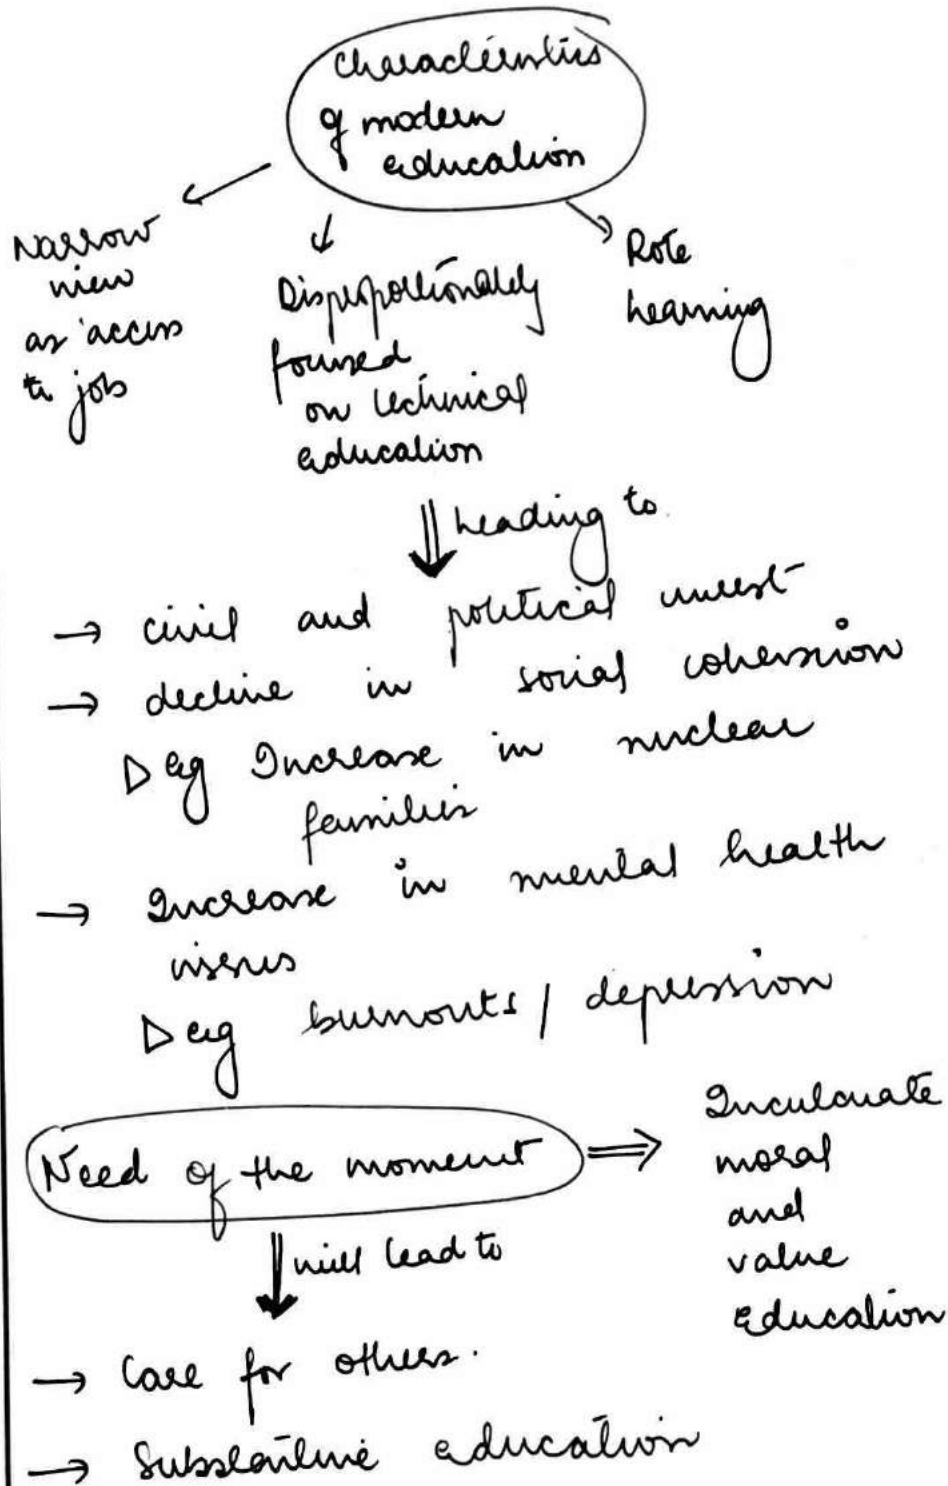 Characteristics
of modern
education
Narrow
view
as access
to job
Disproportionately
focused
on technical
education
Rote
learning
leading to
→ civil and political unrest
→ decline in social cohersion
▷ eg Increase in nuclear
families
→ Increase in mental health
issues
▷ eg burnouts / depression
Need of the moment ⇒
Inculcuate
moral
and
value
education
will lead to
→ Care for others.
→ Substantive education